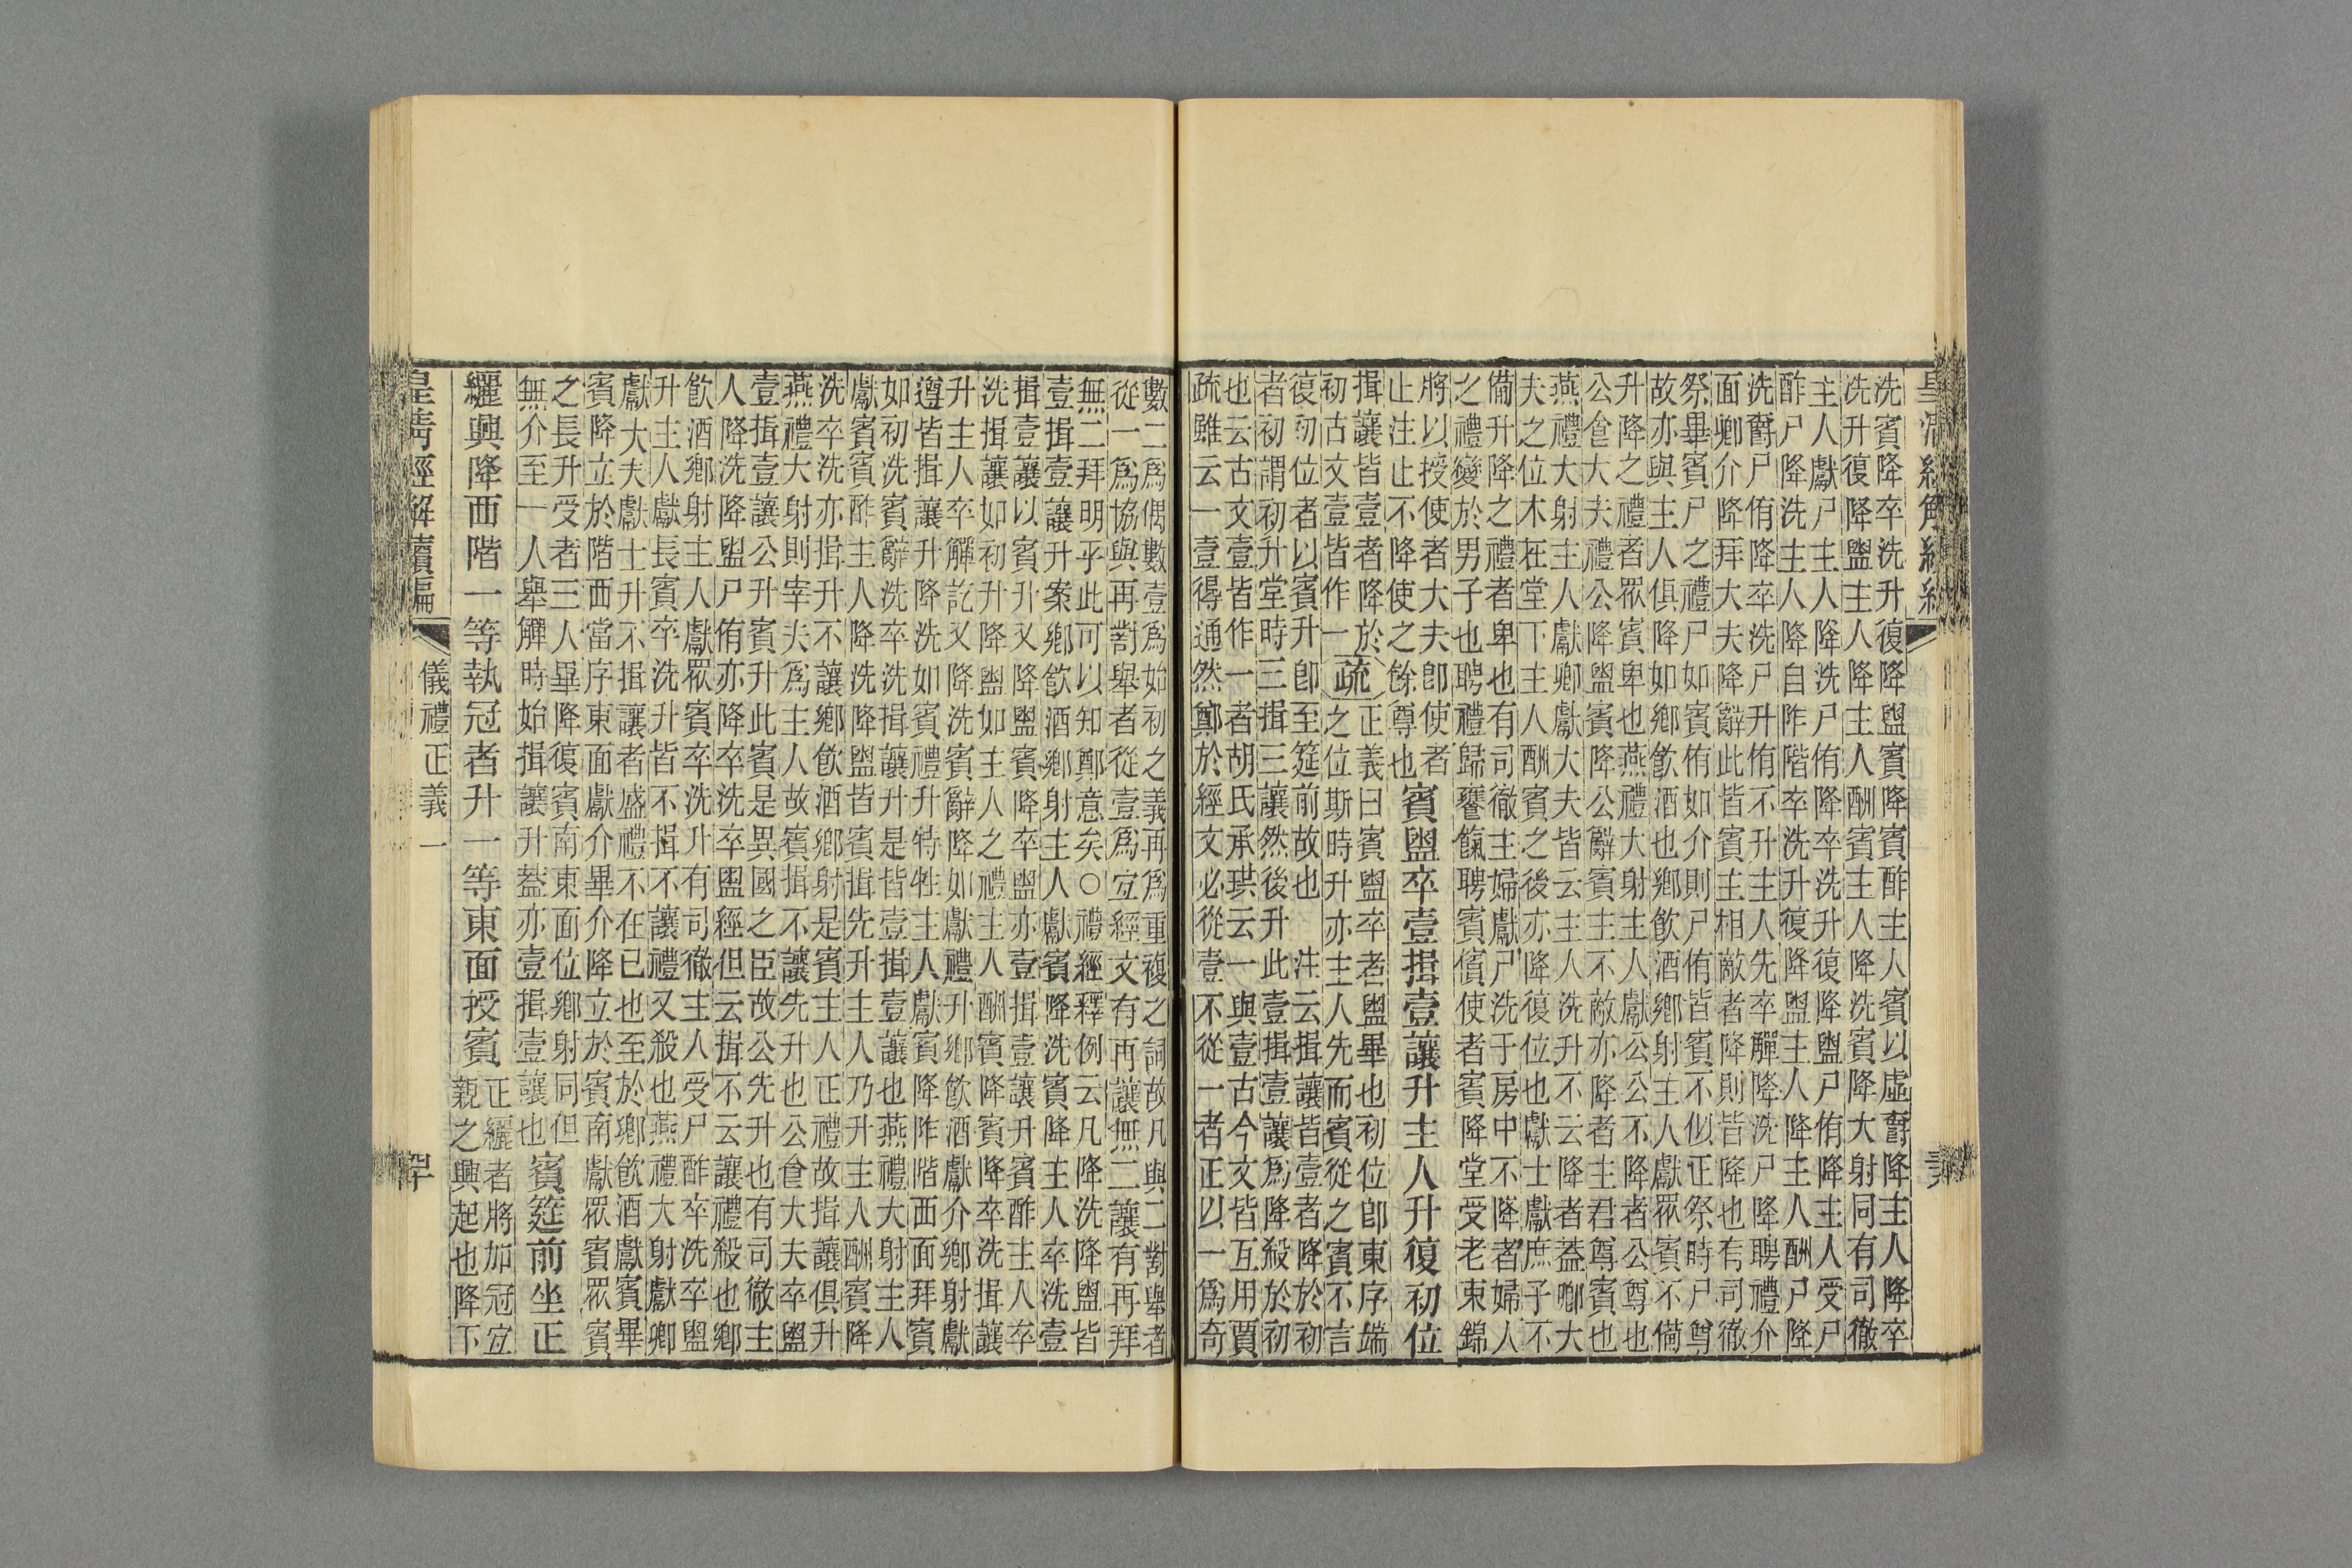 洗賓降卒洗升復降盥賓降賓酢主人賓以虛爵降主人降卒
洗升復降盥主人降主人酬賓主人降洗賓降大射同有司徹
主人獻尸主人降洗尸侑降卒洗升復降盥尸侑降主人受尸
酢尸降洗主人降自阼階卒洗升復降盥主人降主人酬尸降
洗爵尸侑降卒洗尸升侑不升主人先卒觶降洗尸降聘禮介
面卿介降拜大夫降辭此皆賓主相敵者降則皆降也有司徹
祭畢賓尸之禮尸如賓侑如介則尸侑皆賓不似正祭時尸尊
故亦與主人俱降如鄉飲酒也鄉飲酒鄉射主人獻眾賓不備
升降之禮者眾賓卑也燕禮大射主人獻公公不降者公尊也
公食大夫禮公降盥賓降公辭賓主不敵亦降者主君尊賓也
燕禮大射主人獻卿獻大夫皆云主人洗升不云降者蓋卿大
夫之位木在堂下主人酬賓之後亦降復位也獻士獻庶子不
備升降之禮者卑也有司徹主婦獻尸洗于房中不降者婦人
之禮變於男子也聘禮歸饔餼聘賓儐使者賓降堂受老束錦
將以授使者大夫卽使者
止注止不降使之餘尊也
賓盥卒壹揖壹讓升主人升復初位
揖讓皆壹者降於
初古文壹皆作一
疏
正義曰賓盥卒者盥畢也初位卽東序端
之位斯時升亦主人先而賓從之賓不言
復初位者以賓升卽至筵前故也 注云揖讓皆壹者降於初
者初謂初升堂時三揖三讓然後升 此壹揖壹讓爲降殺於初
也云古文壹皆作一者胡氏承珙云一與壹古今文皆互用賈
疏雖云一壹得通然鄭於經文必從壹不從一者正以一爲奇
數二爲偶數壹爲始初之義再爲重複之詞故凡與二對舉者
從一爲協與再對舉者從壹爲宜經文有再讓無二讓有再拜
無二拜明乎此可以知鄭意矣○禮經釋例云凡降洗降盥皆
壹揖壹讓升案鄉飲酒鄉射主人獻賓降洗賓降主人卒洗壹
揖壹讓以賓升又降盥賓降卒盥亦壹揖壹讓升賓酢主人卒
洗揖讓如初升降盥如主人之禮主人酬賓降賓降卒洗揖讓
升主人卒觶訖又降洗賓辭降如獻禮升鄉飲酒獻介鄉射獻
遵皆揖讓升降洗如賓禮升特牲主人獻賓降阼階西面拜賓
如初洗賓辭洗卒洗揖讓升是皆壹揖壹讓也燕禮大射主人
獻賓賓酢主人降洗降盥皆賓揖先升主人乃升主人酬賓降
洗卒洗亦揖升不讓鄉飲酒鄉射是賓主人正禮故揖讓俱升
燕禮大射則宰夫爲主人故賓揖不讓先升也公食大夫卒盥
壹揖壹讓公升賓升此賓是異國之臣故公先升也有司徹主
人降洗降盥尸侑亦降卒洗卒盥經但云揖不云讓禮殺也鄉
飲酒鄉射主人獻眾賓卒洗升有司徹主人受尸酢卒洗卒盥
升主人獻長賓卒洗升皆不揖不讓禮又殺也燕禮大射獻卿
獻大夫獻士升不揖讓者盛禮不在已也至於鄉飲酒獻賓畢
賓降立於階西當序東面獻介畢介降立於賓南獻眾賓眾賓
之長升受者三人畢降復賓南東面位鄉射同但
無介至一人舉觶時始揖讓升蓋亦壹揖壹讓也
賓筵前坐正
纚興降西階一等執冠者升一等東面授賓
正纚者將加冠宜
親之興起也降下
皇清經解續編
儀禮正義一